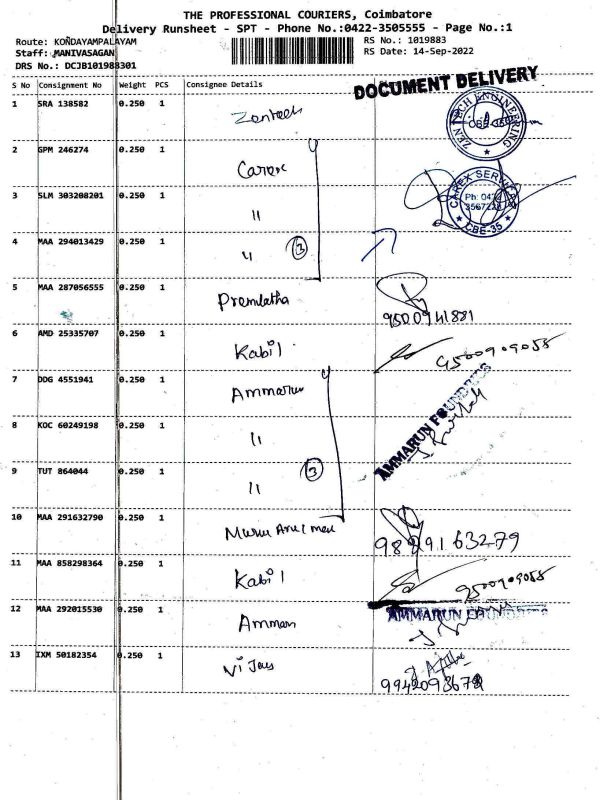 THE PROFESSIONAL COURIERS, Coimbatore
Delivery Runsheet - SPT - Phone No.:0422-3505555 - Page No.:1
Route: KONDAYAMPALAYAM RS No.: 1019883
Staff: MANIVASAGAN RS Date: 14-Sep-2022
DRS No.: DCJB101988301
DOCUMENT DELIVERY
S No Consignment No Weight PCS Consignee Details
1 SRA 138582 0.250 1 Zentech
ZEN TECH ENGINEERING
2 GPM 246274 0.250 1 Carex
3 SLM 303208201 0.250 1 "
CAREX SERVICES
CBE-35
4 MAA 294013429 0.250 1 " 3
5 MAA 287056555 0.250 1 Premlatha
9500941881
6 AMD 25335707 0.250 1 Kabil 9500909055
7 DDG 4551941 0.250 1 Ammarun
AMMARUN FOUNDRIES
8 KOC 60249198 0.250 1 "
9 TUT 864044 0.250 1 " 3
10 MAA 291632790 0.250 1
11 MAA 858298364 0.250 1 Kabil 9500909055
12 MAA 292015530 0.250 1 Amman
AMMARUN FOUNDRIES
13 IXM 50182354 0.250 1